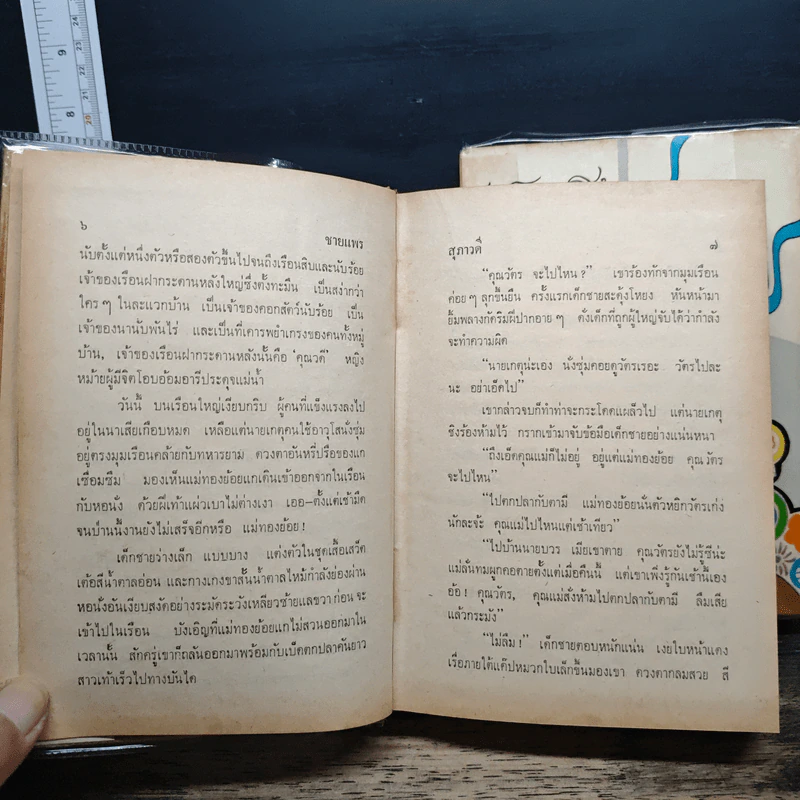 ๖
ชายแพร
นับตั้งแต่หนึ่งตัวหรือสองตัวขึ้นไปจนถึงเรือนสิบและนับร้อย
เจ้าของเรือนฝากระดานหลังใหญ่ซึ่งตั้งทะมึน เป็นสง่ากว่า
ใครๆ ในละแวกบ้าน เป็นเจ้าของคอกสัตว์นับร้อย เป็น
เจ้าของนานับพันไร่ และเป็นที่เคารพยำเกรงของคนทั้งหมู่
บ้าน, เจ้าของเรือนฝากระดานหลังนั้นคือ 'คุณวดี' หญิง
หม้ายผู้มีจิตโอบอ้อมอารีประดุจแม่น้ำ
วันนี้ บนเรือนใหญ่เงียบกริบ ผู้คนที่แข็งแรงลงไป
อยู่ในนาเสียเกือบหมด เหลือแต่นายเกตุคนใช้อาวุโสนั่งซุ่ม
อยู่ตรงมุมเรือนคล้ายกับทหารยาม ดวงตาอันหรี่ปรือของแก
เซื่อมซึม มองเห็นแม่ทองย้อยแกเดินเข้าออกจากในเรือน
กับหอนั่ง ด้วยฝีเท้าแผ่วเบาไม่ต่างเงา เออ—ตั้งแต่เช้ามืด
จนป่านนี้งานยังไม่เสร็จอีกหรือ แม่ทองย้อย!
เด็กชายร่างเล็ก แบบบาง แต่งตัวในชุดเสื้อเสว็ต
เต้อสีน้ำตาลอ่อน และกางเกงขาสั้นน้ำตาลไหม้กำลังย่องผ่าน
หอนั่งอันเงียบสงัดอย่างระมัดระวังเหลียวซ้ายแลขวา ก่อน จะ
เข้าไปในเรือน บังเอิญที่แม่ทองย้อยแกไม่สวนออกมาใน
เวลานั้น สักครู่เขาก็กลับออกมาพร้อมกับเบ็ดตกปลาคันยาว
สาวเท้าเร็วไปทางบันได
สุภาวดี
๗
"คุณวัตร จะไปไหน?" เขาร้องทักจากมุมเรือน
ค่อยๆ ลุกขึ้นยืน ครั้งแรกเด็กชายสะดุ้งโหยง หันหน้ามา
ยิ้มพลางกัดริมฝีปากอายๆ ดั่งเด็กที่ถูกผู้ใหญ่จับได้ว่ากำลัง
จะทำความผิด
"นายเกตุน่ะเอง นั่งซุ่มคอยดูวัตรเรอะ วัตรไปละ
นะ อย่าเอ็ดไป"
เขากล่าวจบก็ทำท่าจะกระโดดแผล็วไป แต่นายเกตุ
ชิงร้องห้ามไว้ กรากเข้ามาจับข้อมือเด็กชายอย่างแน่นหนา
"ถึงเอ็ดคุณแม่ก็ไม่อยู่ อยู่แต่แม่ทองย้อย คุณวัตร
จะไปไหน"
"ไปตกปลากับตามี แม่ทองย้อยนั่นตัวหยิกวัตรเก่ง
นักละจ้ะ คุณแม่ไปไหนแต่เช้าเทียว"
"ไปบ้านนายบวร เมียเขาตาย คุณวัตรยังไม่รู้ซีน่ะ
แม่ลั่นทมผูกคอตายตั้งแต่เมื่อคืนนี้ แต่เขาเพิ่งรู้กันเช้านี้เอง
อ้อ! คุณวัตร, คุณแม่สั่งห้ามไปตกปลากับตามี ลืมเสีย
แล้วกระมัง"
"ไม่ลืม!" เด็กชายตอบหนักแน่น เงยใบหน้าแดง
เรื่อภายใต้แค๊ปหมวกใบเล็กขึ้นมองเขา ดวงตากลมสวย สี